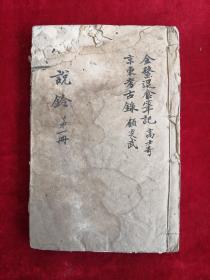 金鳌退食筆記 高士奇
京東考古錄 顧炎武
說鈴 第一冊